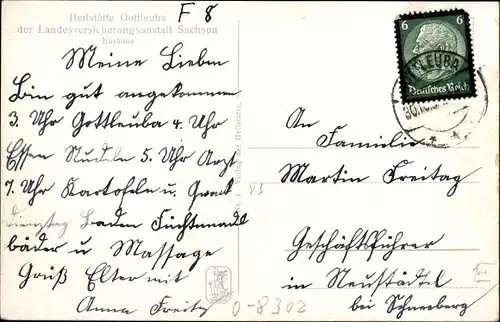 Heilstätte Gottleuba
der Landesversicherungsanstalt Sachsen
Kurhaus
F 8
Meine Lieben
Bin gut angekommen
3. Uhr Gottleuba 4. Uhr
Essen Nudeln 5. Uhr Arzt
7. Uhr Kartofeln u. Quark
Dienstag Baden
bäder u. Massage
Gruß Elter mit
Anna
6 6
Deutsches Reich
An
Familie
Martin Freitag
Geschäftsführer
in Neustädtel
bei Schneeberg
0-8302